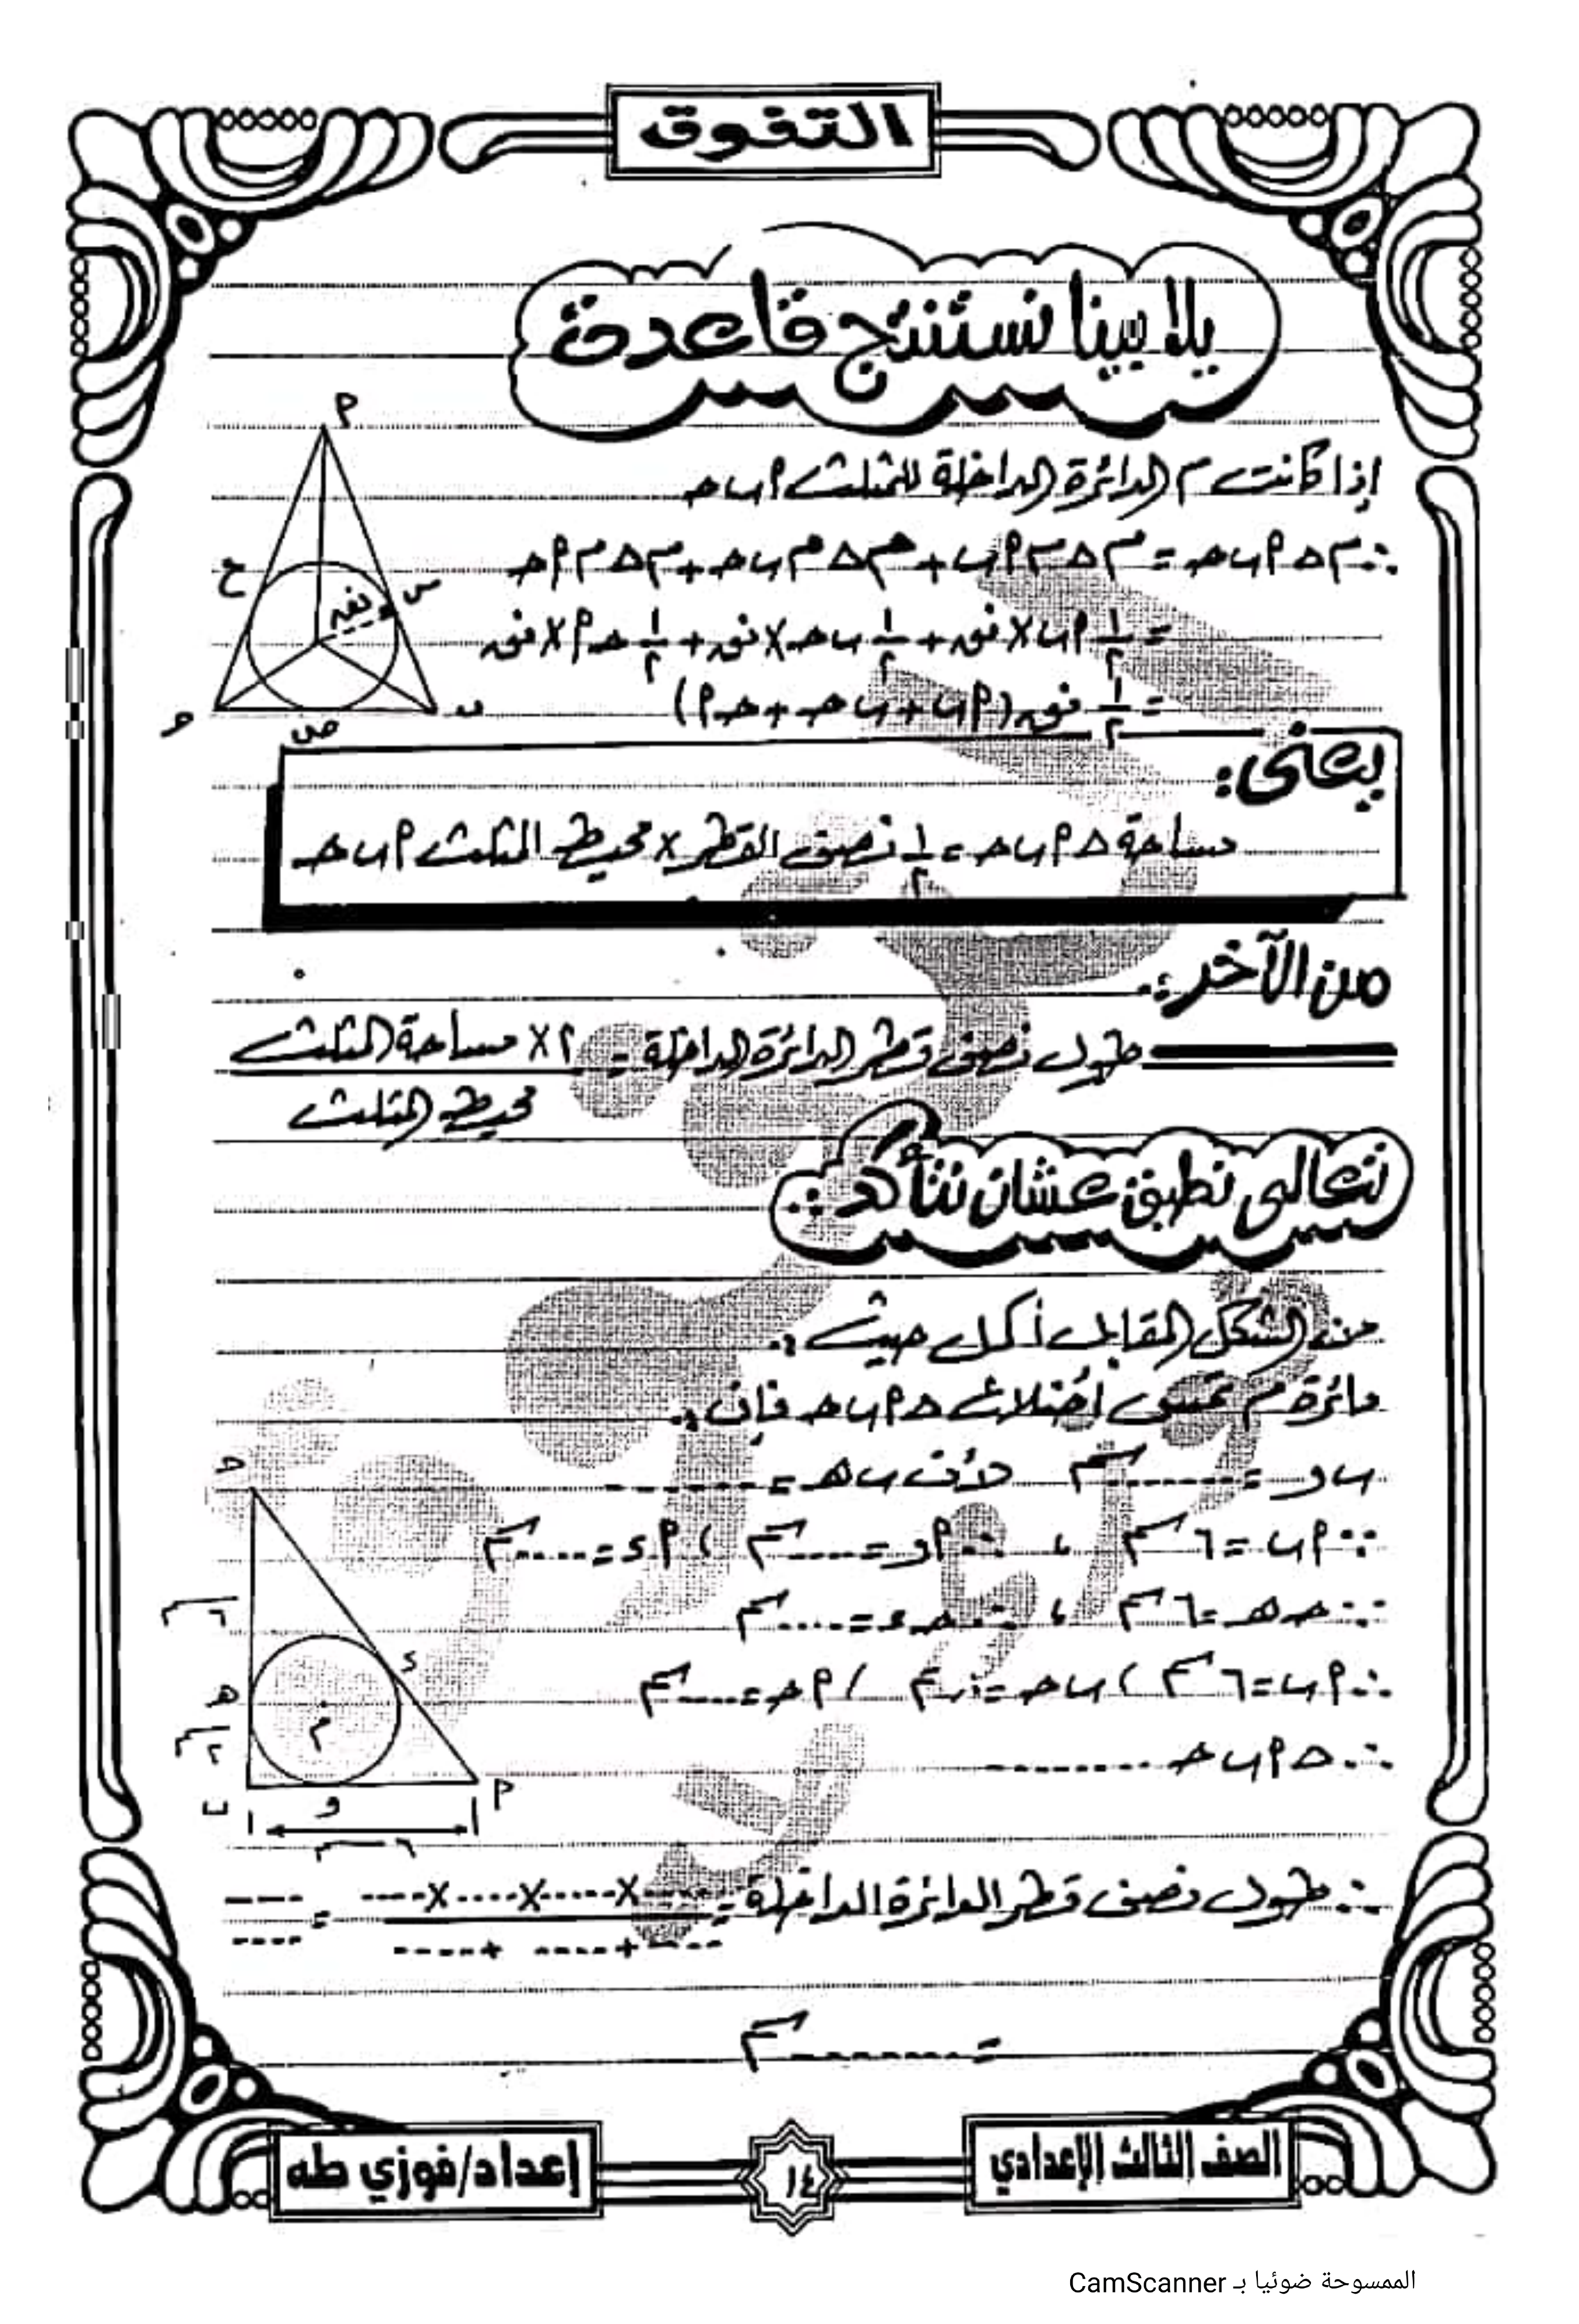 التفوق
يلا بينا نستنتج قاعدة
إذا كانت م الدائرة الداخلة للمثلث أ ب ح
∴ م Δ أ ب ح = م Δ م أ ب + م Δ م ب ح + م Δ م أ ح
= ١/٢ أ ب × نق + ١/٢ ب ح × نق + ١/٢ ح أ × نق
= ١/٢ نق (أ ب + ب ح + ح أ)
أ
ع
س
نق
ح
ص
ب
يعنى:
مساحة Δ أ ب ح = ١/٢ نصف القطر × محيط المثلث أ ب ح
من الآخر:
طول نصف قطر الدائرة الداخلة = ٢ × مساحة المثلث
محيط المثلث
تعالى نطبق عشان نتأكد:
من الشكل المقابل أكمل حيث:
دائرة م تمس أضلاع Δ أ ب ح فإن:
ب و = ........ سم لأن ب ه = ........
∵ أ ب = ٦ سم ، ∴ أ و = .... سم ، أ د = .... سم
∵ ح ه = ٦ سم ، ∴ ح د = .... سم
∴ أ ب = ٦ سم ، ب ح = ... سم ، أ ح = .... سم
∴ Δ أ ب ح ..........
ح
٦ سم
د
ه
م
٢ سم
ب
و
أ
٦ سم
∴ طول نصف قطر الدائرة الداخلة = ....×....×....×.... = ....
....+....+.... ....
= ........ سم
الصف الثالث الإعدادي
١٤
إعداد/فوزي طه
الممسوحة ضوئيا بـ CamScanner